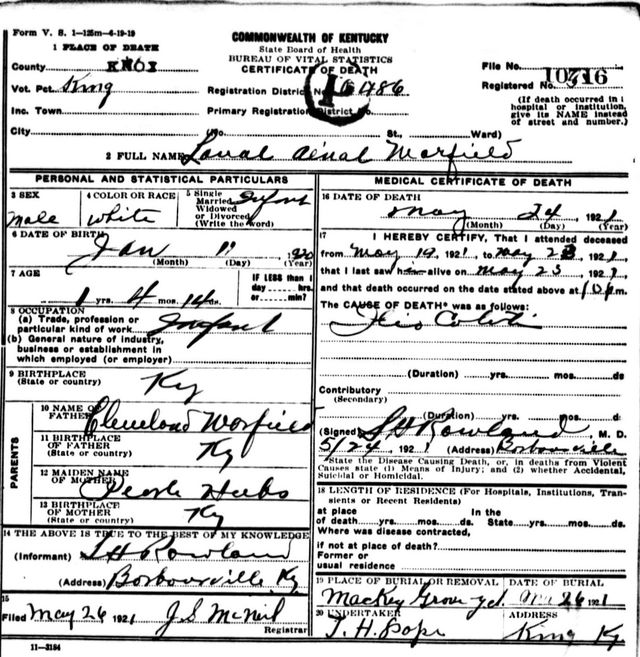 Form V. S. 1—125m—6-19-19
COMMONWEALTH OF KENTUCKY
State Board of Health
BUREAU OF VITAL STATISTICS
CERTIFICATE OF DEATH
1 PLACE OF DEATH
County KNOX
Vot. Pct. King
Inc. Town
City No. St., Ward)
Registration District No. 486
Primary Registration District No.
File No.
Registered No. 10716
(If death occurred in
hospital or institution,
give its NAME instead
of street and number.)
2 FULL NAME Warfield
PERSONAL AND STATISTICAL PARTICULARS
3 SEX
Male
4 COLOR OR RACE
White
5 Single
Married
Widowed
or Divorced
(Write the word)
Infant
6 DATE OF BIRTH
Jan 11 1920
(Month) (Day) (Year)
7 AGE
1 yrs. 4 mos. 14 ds.
IF LESS than 1
day hrs.
or min.
8 OCCUPATION
(a) Trade, profession or
particular kind of work Infant
(b) General nature of industry,
business or establishment in
which employed (or employer)
9 BIRTHPLACE
(State or country) Ky
PARENTS
10 NAME OF
FATHER Cleveland Warfield
11 BIRTHPLACE
OF FATHER
(State or country) Ky
12 MAIDEN NAME
OF MOTHER
13 BIRTHPLACE
OF MOTHER
(State or country) Ky
14 THE ABOVE IS TRUE TO THE BEST OF MY KNOWLEDGE
(Informant) Rowland
(Address) Barbourville Ky
15
Filed May 26 1921 J S McNeil
Registrar
11—3184
MEDICAL CERTIFICATE OF DEATH
16 DATE OF DEATH
May 24, 1921
(Month) (Day) (Year)
17 I HEREBY CERTIFY, That I attended deceased
from May 19, 1921 to May 23, 1921
that I last saw h alive on May 23, 1921
and that death occurred on the date stated above at 10 P.m.
The CAUSE OF DEATH* was as follows:
Ileo Colitis
(Duration) yrs. mos. ds
Contributory
(Secondary)
(Duration) yrs. mos. ds
(Signed) Rowland M. D.
5/24 1921 (Address) Barbourville
*State the Disease Causing Death, or, in deaths from Violent
Causes state (1) Means of Injury; and (2) whether Accidental,
Suicidal or Homicidal.
18 LENGTH OF RESIDENCE (For Hospitals, Institutions, Tran-
sients or Recent Residents)
at place In the
of death yrs. mos. ds. State yrs. mos. ds.
Where was disease contracted,
if not at place of death?
Former or
usual residence
19 PLACE OF BURIAL OR REMOVAL DATE OF BURIAL
Mackey Grove yd. 26 1921
20 UNDERTAKER ADDRESS
T. H. Pope King Ky